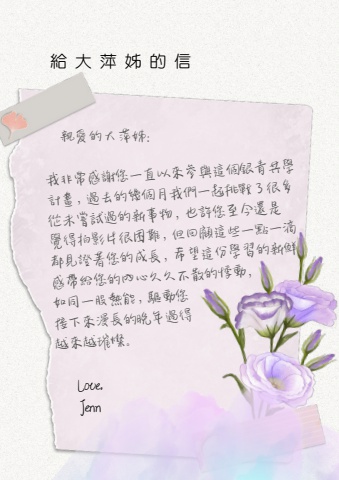 給大萍姊的信
親愛的大萍姊：
我非常感謝您一直以來參與這個銀青共學
計畫，過去的幾個月我們一起挑戰了很多
從未嘗試過的新事物，也許您至今還是
覺得拍影片很困難，但回顧這些一點一滴
都見證著您的成長，希望這份學習的新鮮
感帶給您的內心久久不散的悸動，
如同一股熱能，驅動您
接下來漫長的晚年過得
越來越璀璨。
Love,
Jenn